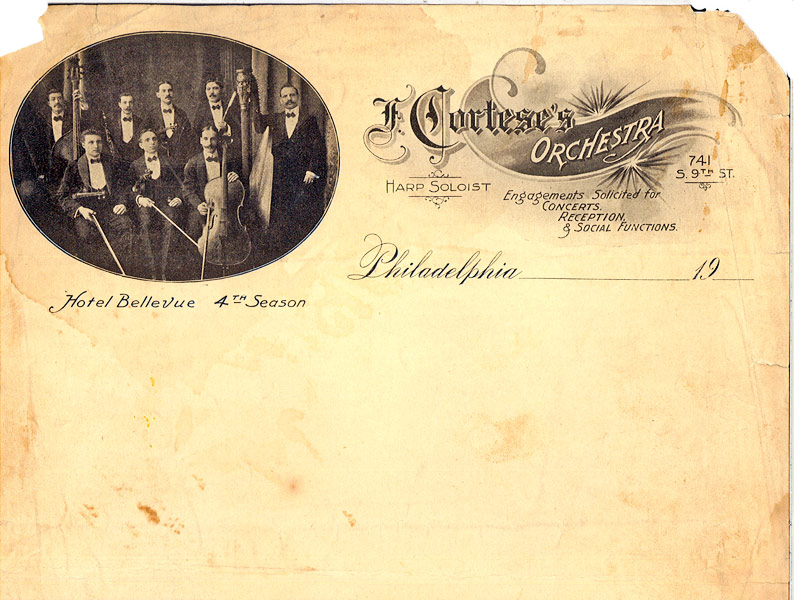 F. Cortese's
ORCHESTRA
741
S. 9TH ST.
HARP SOLOIST
Engagements Solicited for
CONCERTS,
RECEPTION,
& SOCIAL FUNCTIONS.
Philadelphia 19
Hotel Bellevue 4TH Season